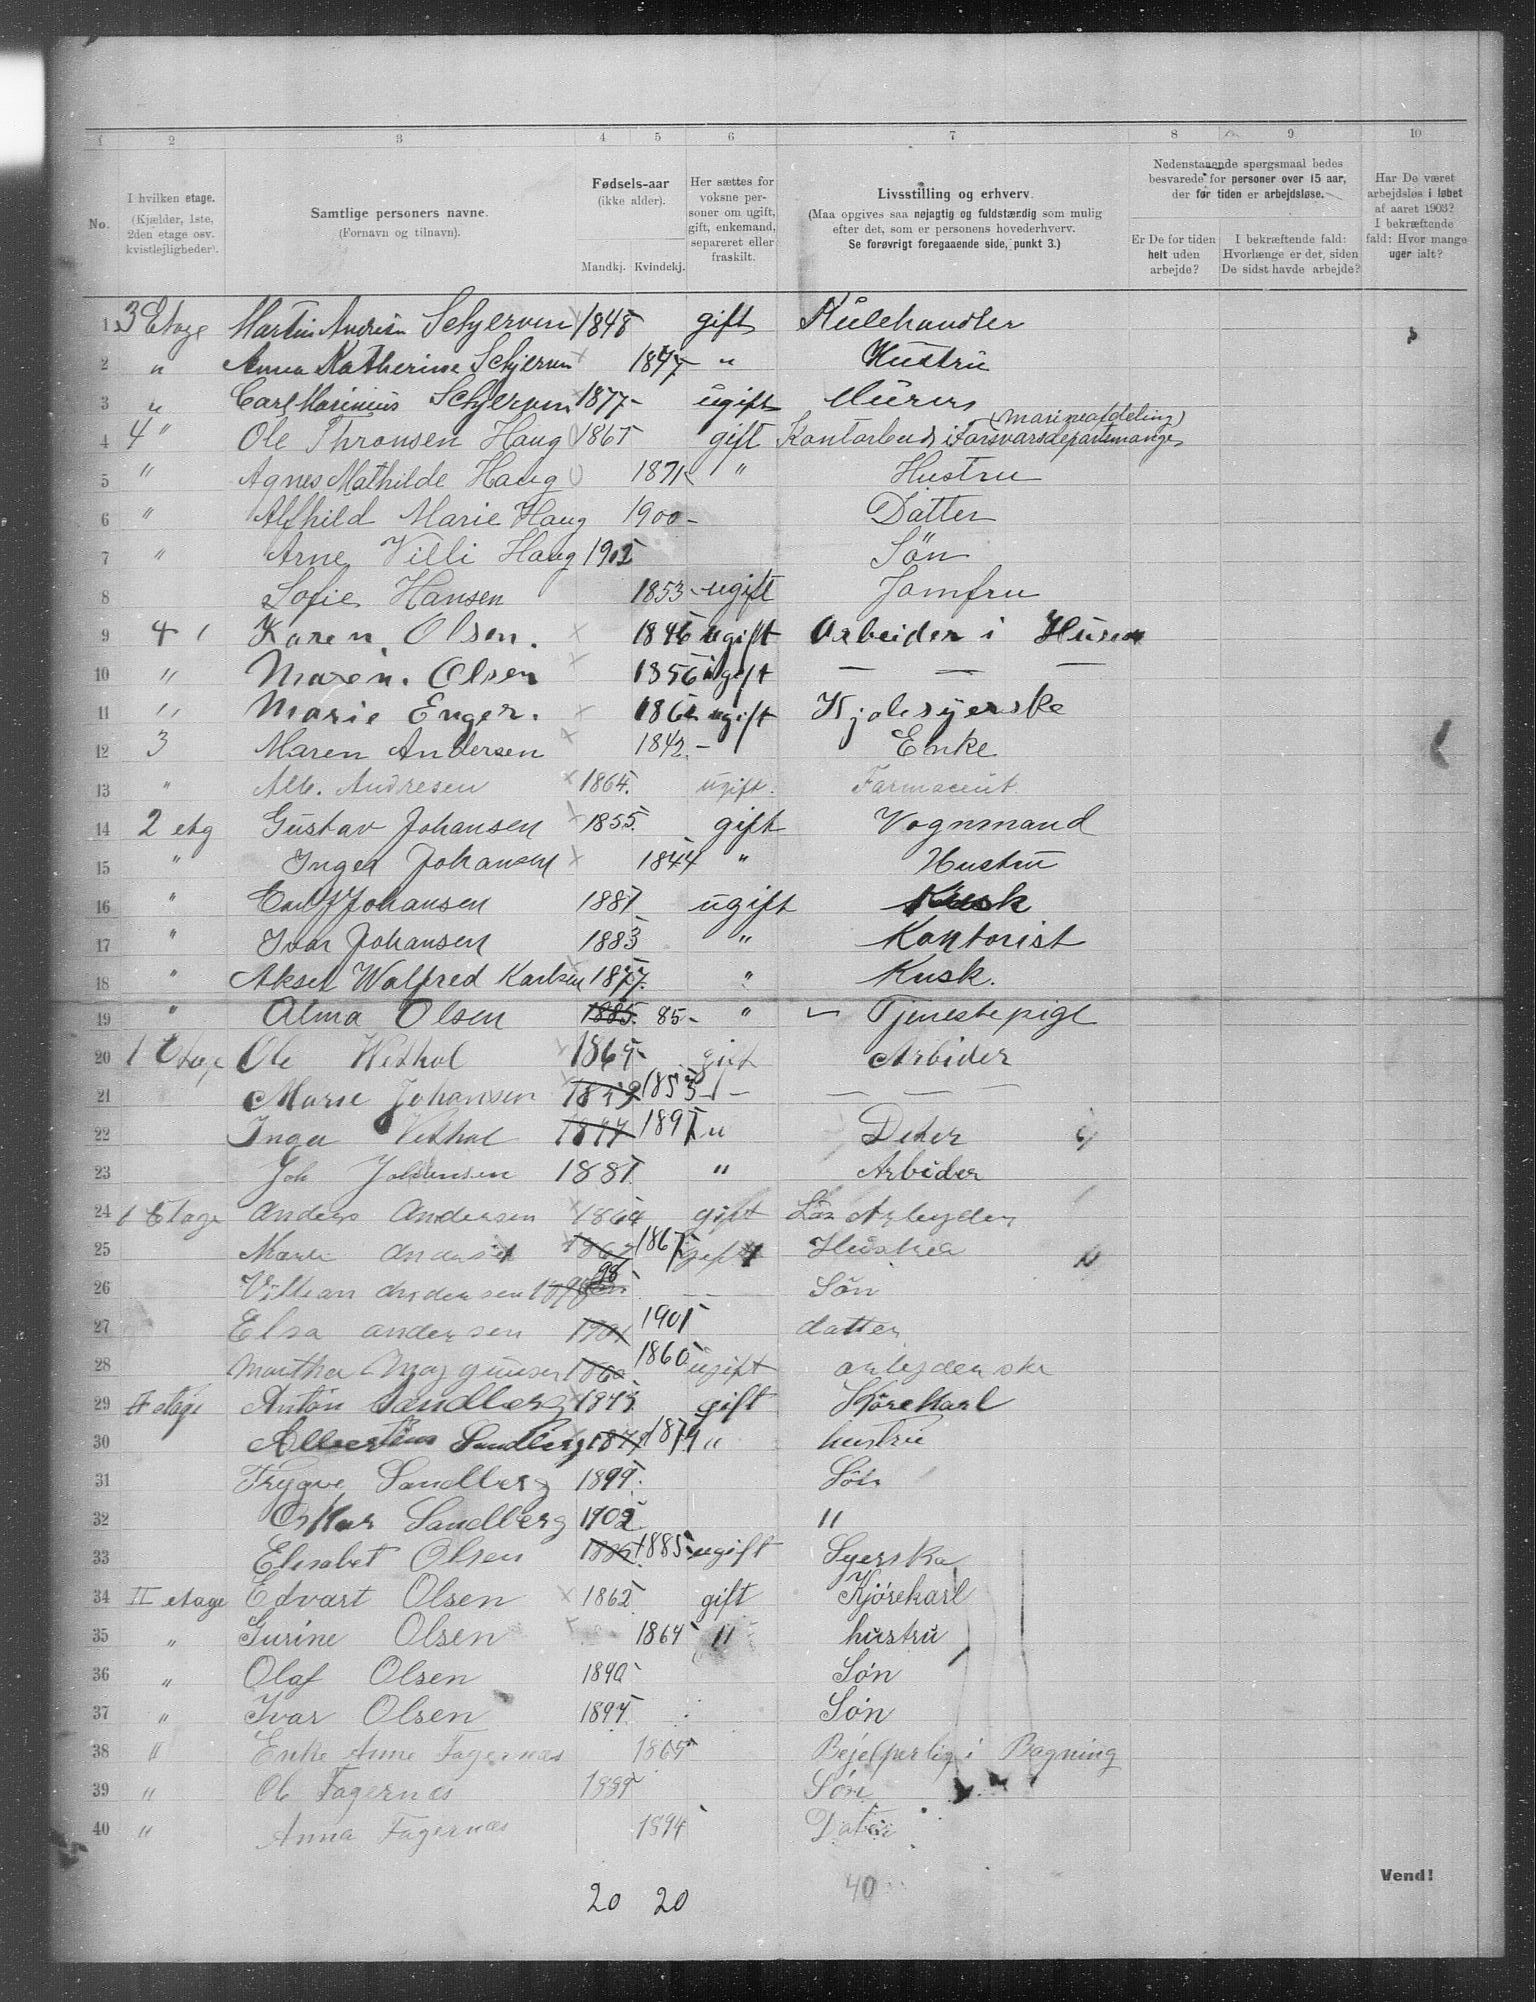 1 2 3 4 5 6 7 8 9 10
No. I hvilken etage. (Kjælder, 1ste, 2den etage osv. kvistlejligheder).
Samtlige personers navne. (Fornavn og tilnavn).
Fødsels-aar (ikke alder). Mandkj. Kvindekj.
Her sættes for voksne personer om ugift, gift, enkemand, separeret eller fraskilt.
Livsstilling og erhverv. (Maa opgives saa nøjagtig og fuldstærdig som mulig efter det, som er personens hovederhverv. Se forøvrigt foregaaende side, punkt 3.)
Nedenstaaende spørgsmaal bedes besvarede for personer over 15 aar, der før tiden er arbejdsløse.
Er De for tiden helt uden arbejde?
I bekræftende fald: Hvorlænge er det, siden De sidst havde arbejde?
Har De været arbejdsløs i løbet af aaret 1903? I bekræftende fald: Hvor mange uger ialt?
1 3 Etage Martin Andrisn Schjerven 1848 gift Külehandler
2 " Anna Katherine Schjerven 1847 " Hustrü
3 " Carl Marinius Schjerven 1877 ugift Murer
4 4 " Ole Thronsen Haug 1867 gift Kontorbud i Forsvarsdepartemange (Marineafdeling)
5 " Agnes Mathilde Haug 1871 " Hustru
6 " Alfhild Marie Haug 1900 Datter
7 " Arne Villi Haug 1902 Sön
8 Sofie Hansen 1853 ugift Jomfru
9 4 Karen Olsen. 1846 ugift Arbeider i Husen
10 " Maren. Olsen 1856 ugift — — —
11 " Marie Enger. 186 ugift Kjolesyerske
12 3 Maren Andersen 1842 - Enke
13 " Alb. Andresen 1864. ugift. Farmaceut.
14 2 etg Gustav Johansen 1855. gift Vognmand
15 " Inger Johansen 1844 " Hustrü
16 " Johansen 1881 ugift Kusk
17 " Ivar Johansen 1883 " Kontorist
18 " Aksel Walfred Karlsen 1877. " Kusk.
19 " Alma Olsen 1885. 85 " Tjenestepige
20 1 Etage Ole Wethal 1865 gift Arbider
21 Marie Johansen 1853 — —
22 Inga Vethal 1897 " Deter
23 Joh Johansen 1881 " Arbider
24 1 Etage Anders Andersen 1864 gift Løs Arbeyder
25 Marie 1867 gift Hustrea
26 Andersen 98 Sön
27 Elsa andersen 1901 1901 datter
28 Martha 1860 1860 ugift arbeyderske
29 II etage Anton Sandberg 1843. gift Kjørekarl
30 Sandberg 1874 " hustrü
31 Trygve Sandberg 1899. Sön
32 Oskar Sandberg 1902 "
33 Elisabet Olsen 1885 1885 ugift Syerska
34 II etage Edvart Olsen 1862 gift Kjørekarl
35 " Gurine Olsen 1864 " hustrü
36 " Olaf Olsen 1890 Søn
37 " Ivar Olsen 1894 Søn
38 " Enke Anne Fagernæs 1865 i
39 " Ole Fagernæs 1889 Søn
40 " Anna Fagernæs 1894
Vend!
20 20 40